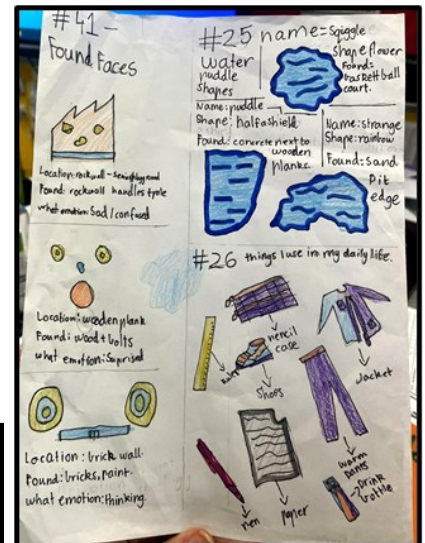 #41 -
Found Faces
Location: rockwall -
Found: rockwall handles + pole
what emotion: Sad / confused
Location: wooden plank
Found: wood + bolts
what emotion: Suprised
Location: brick wall.
Found: bricks, paint.
what emotion: thinking.
#25 name = Sqiggle
water
puddle
shapes
Shape flower
Found:
baskettball
court.
Name: puddle
Shape: half a shield
Found: concrete next to
wooden
planks.
Name: strange
Shape: rainbow
Found: Sand
Pit
edge
#26 things I use in my daily life.
pencil
case
Ruler
Shoes
Jacket
warm
pants
Drink
bottle
Pen
Paper